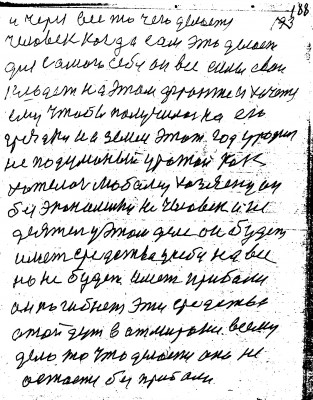 188
193
и через все то чего делает
человек когда сам это делает
для самого себя он все силы свои
кладет на этом фронте и хочет
ему чтобы получилось на его
на земле этот год урожай
не подуманый урожай как
хотелось любому хозяену он
бы экономики не человек и не
деятель у этом деле он будет
имеет средства на все
но не будет имет прибали
он погибнет эти средства
отойдут в атмировани всему
делу то что делает оно не
остаетс без прибали